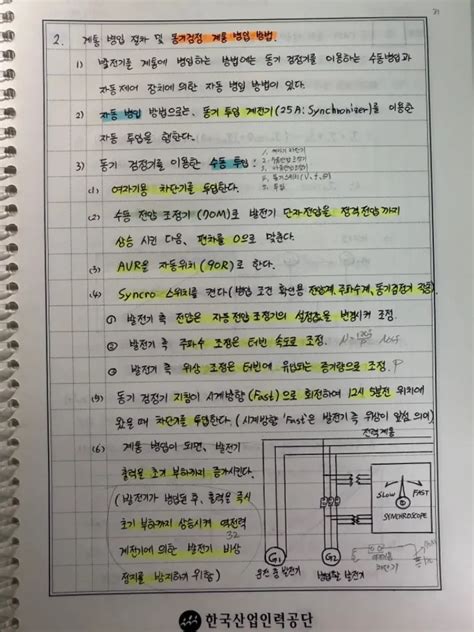 2. 계통 병입 절차 및 동기검정 계통 병입 방법.
1) 발전기를 계통에 병입하는 방법에는 동기 검정기를 이용하는 수동병입과
자동 제어 장치에 의한 자동 병입 방법이 있다.
2) 자동 병입 방법으로는, 동기 투입 계전기(25A: Synchronizer)를 이용한
자동 투입을 한다.
3) 동기 검정기를 이용한 수동 투입 :
(1) 여자기용 차단기를 투입한다.
(2) 수동 전압 조정기(70M)로 발전기 단자전압을 정격전압까지
상승 시킨 다음, 편차를 0으로 맞춘다.
(3) AVR을 자동위치(90R)로 한다.
(4) Syncro 스위치를 켠다(병입 조건 확인용 전압계, 주파수계, 동기검정기
① 발전기 측 전압은 자동전압 조정기의 설정값을 변경시켜 조정.
② 발전기 측 주파수 조정은 터빈 속도로 조정.
③ 발전기 측 위상 조정은 터빈에 유입되는 증기량으로 조정. P
(5) 동기 검정기 지침이 시계방향(Fast)으로 회전하여 12시 5분전 위치에
왔을 때 차단기를 투입한다. (시계방향 'Fast'은 발전기 측 위상이 앞섬 의미)
(6) 계통 병입이 되면, 발전기
출력을 초기 부하까지 증가시킨다.
(발전기가 병입된 후, 출력을 즉시
초기 부하까지 상승시켜 역전력
32
계전기에 의한 발전기 비상
정지를 방지하기 위함)
전력계통
SLOW FAST
SYNCHROSCOPE
G1 G2
운전 중 발전기 병입할 발전기
한국산업인력공단